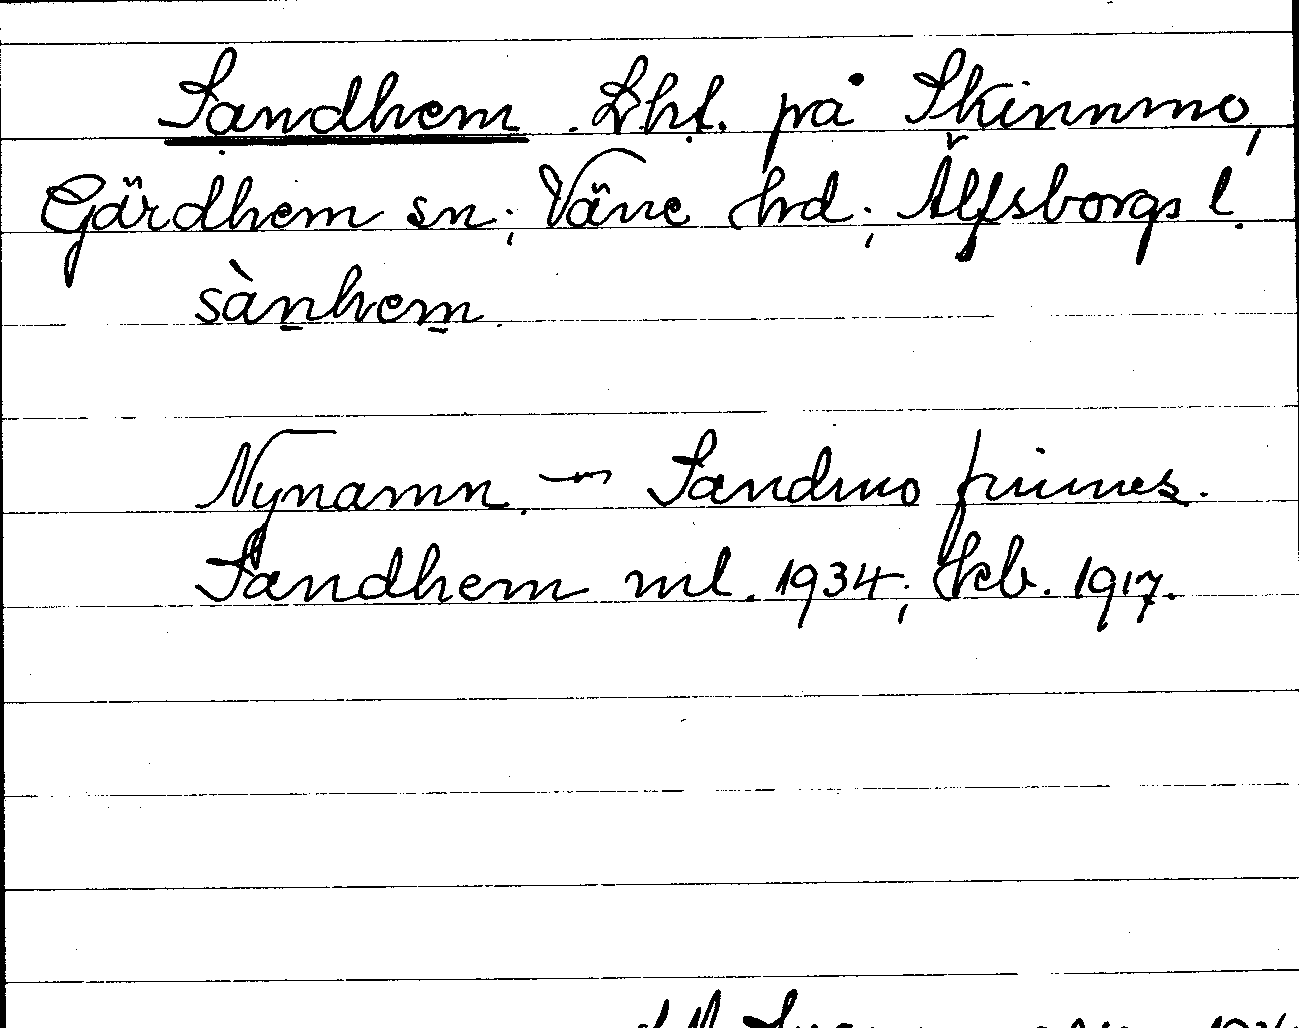 Sandhem. Lht. på Skinnmo,
Gärdhem sn; Väne hd; Älfsborgs l.
sànhem.
Nynamn. — Sandmo finnes.
Sandhem ml. 1934; hkb. 1917.